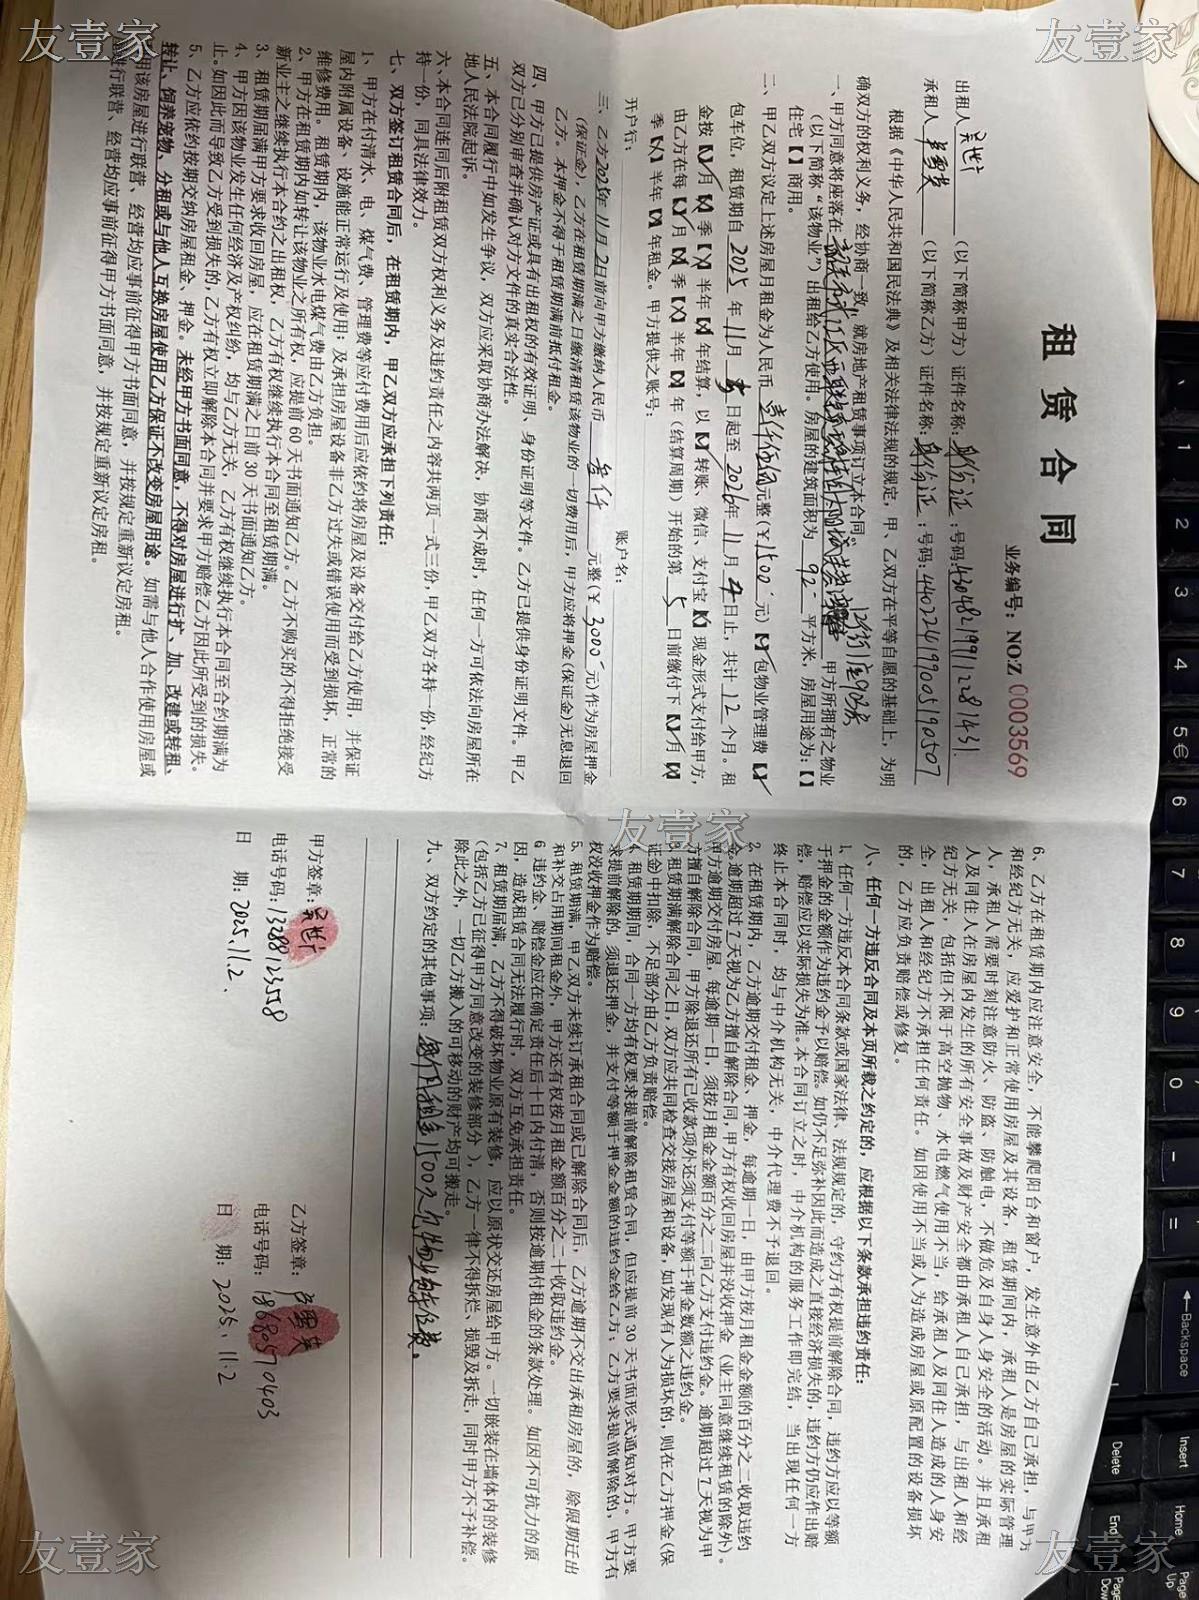 友壹家
友壹家
友壹家
友壹家
友壹家
租赁合同
业务编号：NO:Z 0003569
出租人 吴世 （以下简称甲方）证件名称：身份证；号码：430482199112281431.
承租人 （以下简称乙方）证件名称：身份证；号码：440224199005190507
根据《中华人民共和国民法典》及相关法律法规的规定，甲、乙双方在平等自愿的基础上，为明
确双方的权利义务，经协商一致，就房地产租赁事项订立本合同。
一、甲方同意将座落在 12街 座903房 甲方所拥有之物业
（以下简称“该物业”）出租给乙方使用。房屋的建筑面积为 92 平方米，房屋用途为：【】
住宅【】商用。
二、甲乙双方议定上述房屋月租金为人民币 壹仟伍佰 元整（￥1500 元）【✓】包物业管理费【✓】
包车位，租赁期自 2025 年 11 月 日起至 2026 年 11 月 4 日止，共计 12 个月。租
金按【✓】月【】季【】半年【】年结算，以【✓】转账、微信、支付宝【】现金形式支付给甲方，
由乙方在每【】月【】季【】半年【】年（结算周期）开始的第 5 日前缴付下【】月【】
季【】半年【】年租金。甲方提供之账号：
开户行： 账户名：
三、乙方2025年11月2日前向甲方缴纳人民币 叁仟 元整（￥3000 元）作为房屋押金
（保证金），乙方在租赁期满之日缴清租赁该物业的一切费用后，甲方应将押金（保证金）无息退回
乙方。本押金不得于租赁期满前抵付租金。
四、甲方已提供房产证或具有出租权的有效证明、身份证明等文件。乙方已提供身份证明文件。甲乙
双方已分别审查并确认对方文件的真实合法性。
五、本合同履行中如发生争议，双方应采取协商办法解决，协商不成时，任何一方可依法向房屋所在
地人民法院起诉。
六、本合同连同后附租赁双方权利义务及违约责任之内容共两页一式三份，甲乙双方各持一份，经纪方
持一份，同具法律效力。
七、双方签订租赁合同后，在租赁期内，甲乙双方应承担下列责任：
1、甲方在付清水、电、煤气费、管理费等应付费用后应依约将房屋及设备交付给乙方使用，并保证
屋内附属设备、设施能正常运行及使用；及承担房屋设备非乙方过失或错误使用而受到损坏，正常的
维修费用。租赁期内，该物业水电煤气费由乙方负担。
2、甲方在租赁期内如转让该物业之所有权，应提前 60 天书面通知乙方。乙方不购买的不得拒绝接受
新业主之继续执行本合约之出租权，乙方有权继续执行本合同至租赁期满。
3、租赁期届满甲方要求收回房屋，应在租赁期满之日前 30 天书面通知乙方。
4、甲方因该物业发生任何经济及产权纠纷，均与乙方无关，乙方有权继续执行本合同至合约期满为
止。如因此而导致乙方受到损失的，乙方有权立即解除本合同并要求甲方赔偿乙方因此所受到的损失。
5、乙方应依约按期交纳房屋租金、押金。未经甲方书面同意，不得对房屋进行扩、加、改建或转租、
转让、饲养宠物、分租或与他人互换房屋使用乙方保证不改变房屋用途。如需与他人合作使用房屋或
用该房屋进行联营、经营均应事前征得甲方书面同意，并按规定重新议定房租。
进行联营、经营均应事前征得甲方书面同意，并按规定重新议定房租。
6、乙方在租赁期内应注意安全，不能攀爬阳台和窗户，发生意外由乙方自己承担，与甲方
和经纪方无关，应爱护和正常使用房屋及其设备，租赁期间内，承租人是房屋的实际管理
人，承租人需要时刻注意防火、防盗、防触电，不做危及自身人身安全的活动。并且承租
人及同住人在房屋内发生的所有安全事故及财产安全都由承租人自己承担，与出租人和经
纪方无关，包括但不限于高空抛物、水电燃气使用不当，给承租人及同住人造成的人身安
全，出租人和经纪方不承担任何责任。如因使用不当或人为造成房屋或原配置的设备损坏
的，乙方应负责赔偿或修复。
八、任何一方违反合同及本页所载之约定的，应根据以下条款承担违约责任：
1、任何一方违反本合同条款或国家法律、法规规定的，守约方有权提前解除合同，违约方应以等额
于押金的金额作为违约金予以赔偿。如仍不足弥补因此而造成之直接经济损失的，违约方仍应作出赔
偿，赔偿应以实际损失为准。本合同订立之时，中介机构的服务工作即完结，当出现任何一方
终止本合同时，均与中介机构无关，中介代理费不予退回。
2、在租赁期内，乙方逾期交付租金、押金，每逾期一日，由甲方按月租金金额的百分之二收取违约
金，逾期超过 7 天视为乙方擅自解除合同，甲方有权收回房屋并没收押金（业主同意继续租赁的除外）。
甲方逾期交付房屋，每逾期一日，须按月租金金额百分之二向乙方支付违约金。逾期超过 7 天视为甲
方擅自解除合同，甲方除退还所有已收款项外还须支付等额于押金数额之违约金。
3、租赁期满解除合同之日，双方应共同检查交接房屋和设备，如发现有人为损坏的，则在乙方押金（保
证金）中扣除，不足部分由乙方负责赔偿。
4、租赁期期间，合同一方均有权要求提前解除租赁合同，但应提前 30 天书面形式通知对方。甲方要
求提前解除的，须退还押金，并支付等额于押金金额的违约金给乙方；乙方要求提前解除的，甲方有
权没收押金作为赔偿。
5、租赁期满，甲乙双方未续订承租合同或已解除合同后，乙方逾期不交出承租房屋的，除限期迁出
和补交占用期间租金外，甲方还有权按月租金额百分之二十收取违约金。
6 违约金、赔偿金应在确定责任后十日内付清，否则按逾期付租金的条款处理。如因不可抗力的原
因，造成租赁合同无法履行时，双方互免承担责任。
7、租赁期届满，乙方不得破坏物业原有装修，应以原状交还房屋给甲方。一切嵌装在墙体内的装修
（包括乙方已征得甲方同意改变的装修部分），乙方一律不得拆烂、损毁及拆走，同时甲方不予补偿。
除此之外，一切乙方搬入的可移动的财产均可搬走。
九、双方约定的其他事项：每月租金1500元包物业
甲方签章：吴世
电话号码：13288123558
日 期：2025.11.2.
乙方签章：
电话号码：18680570403
日 期：2025.11.2
1
2
3
4
5 €
6
7
8
9
0
-
=
←Backspace
Insert
Home
Page Up
Delete
End
Page Down